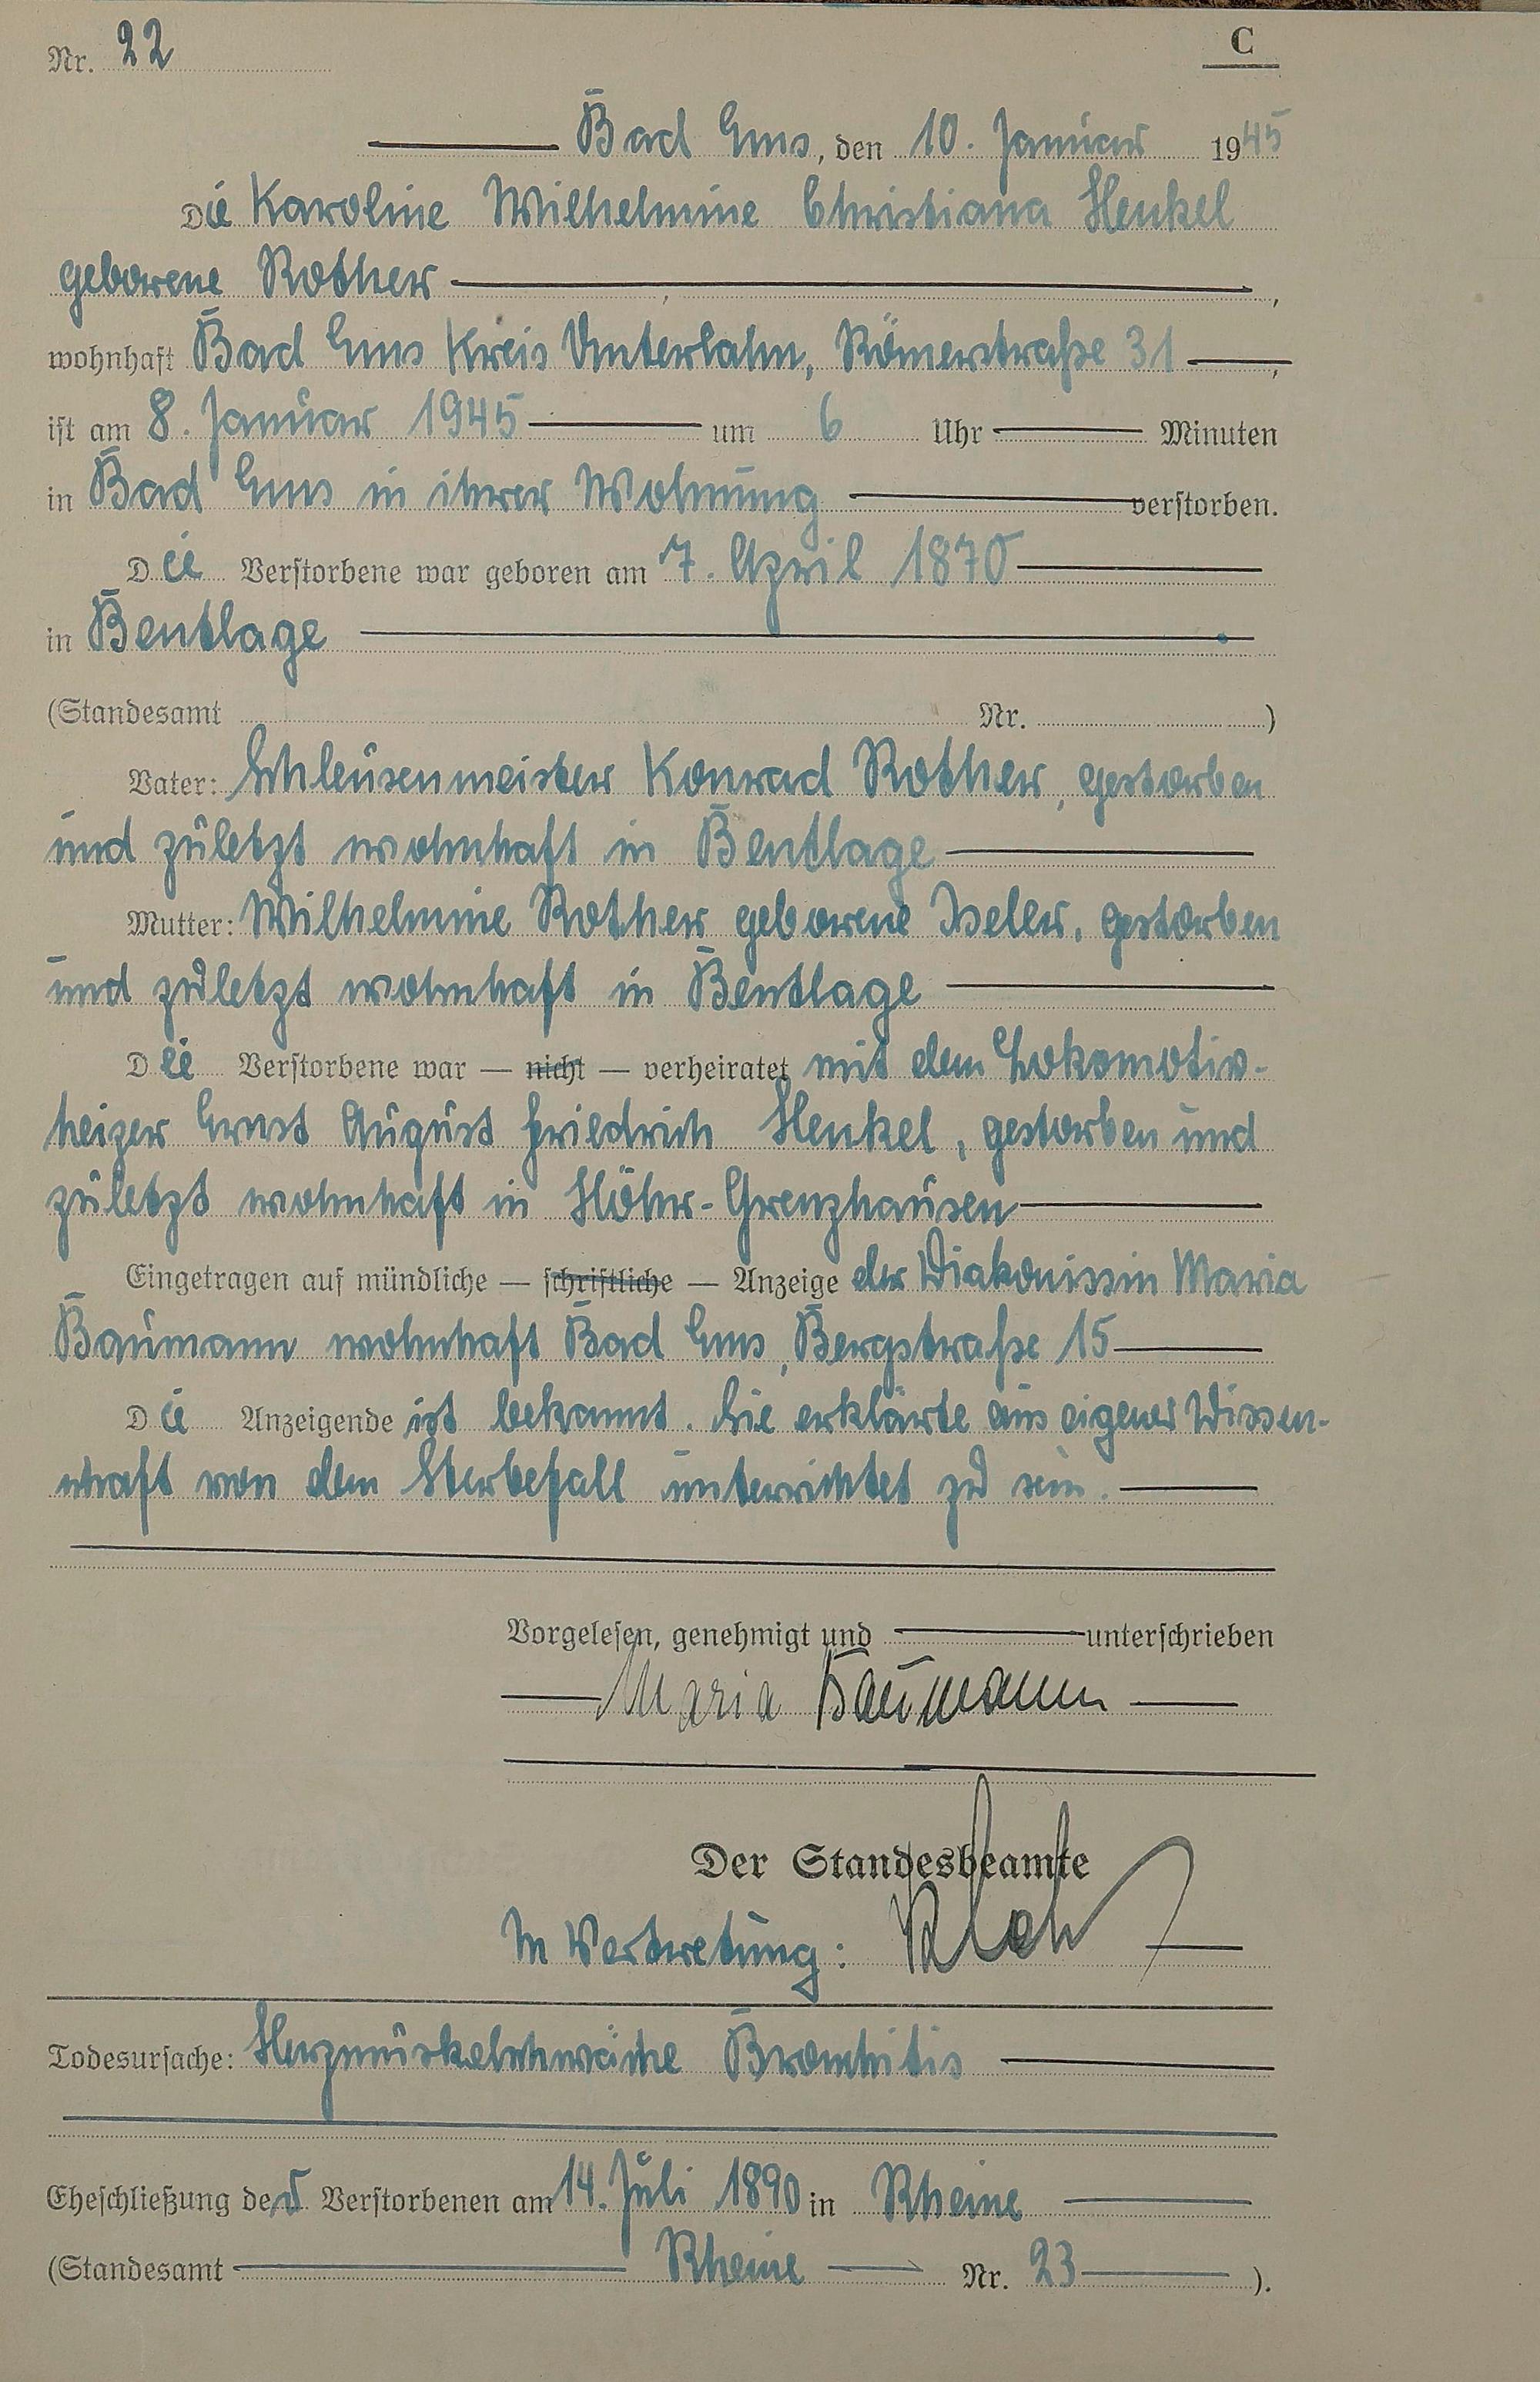 Nr. 22
C
Bad Ems, den 10. Januar 1945
Die Karoline Wilhelmine Christiana Henkel
geborene Rother,
wohnhaft Bad Ems Kreis Unterlahn, Römerstraße 31,
ist am 8. Januar 1945 um 6 Uhr Minuten
in Bad Ems in ihrer Wohnung verstorben.
Die Verstorbene war geboren am 7. April 1870
in Bentlage
(Standesamt Nr. )
Vater: Schleusenmeister Konrad Rother, gestorben
und zuletzt wohnhaft in Bentlage
Mutter: Wilhelmine Rother geborene Iseler, gestorben
und zuletzt wohnhaft in Bentlage
Die Verstorbene war — nicht — verheiratet mit dem Lokomotiv-
heizer Ernst August Friedrich Henkel, gestorben und
zuletzt wohnhaft in Höhr-Grenzhausen
Eingetragen auf mündliche — schriftliche — Anzeige der Diakonissin Maria
Baumann wohnhaft Bad Ems, Bergstraße 15
Die Anzeigende ist bekannt. Sie erklärte aus eigener Wissen-
schaft von dem Sterbefall unterrichtet zu sein.
Vorgelesen, genehmigt und unterschrieben
Maria Baumann
Der Standesbeamte
In Vertretung:
Todesursache: Herzmuskelschwäche Bronchitis
Eheschließung der Verstorbenen am 14. Juli 1890 in Rheine
(Standesamt Rheine Nr. 23 ).